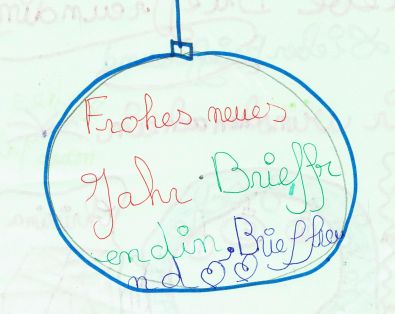 Frohes neues
Jahr. Brieffr
endin, Brieffreu
nd